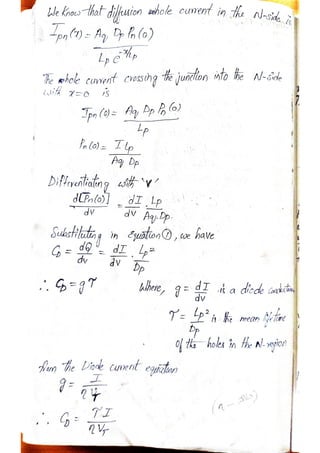 We know that diffusion hole current in the N-side is
Ipn(x) = Aq Dp Pn(o)
Lp e^-x/Lp
The hole current crossing the junction into the N-side
with x=0 is
Ipn(o) = Aq Dp Pn(o)
Lp
Pn(o) = I Lp
Aq Dp
Differentiating with 'v'
d[Pn(o)] = dI . Lp
dv dv Aq.Dp.
Substituting in Equation ①, we have
CD = dQ = dI . Lp²
dv dv Dp
∴ CD = gτ where, g = dI is a diode conductan
dv
τ = Lp² is the mean life time
Dp
of the holes in the N-region
from the Diode current equation
g = I
ηVT
∴ CD = τI
ηVT